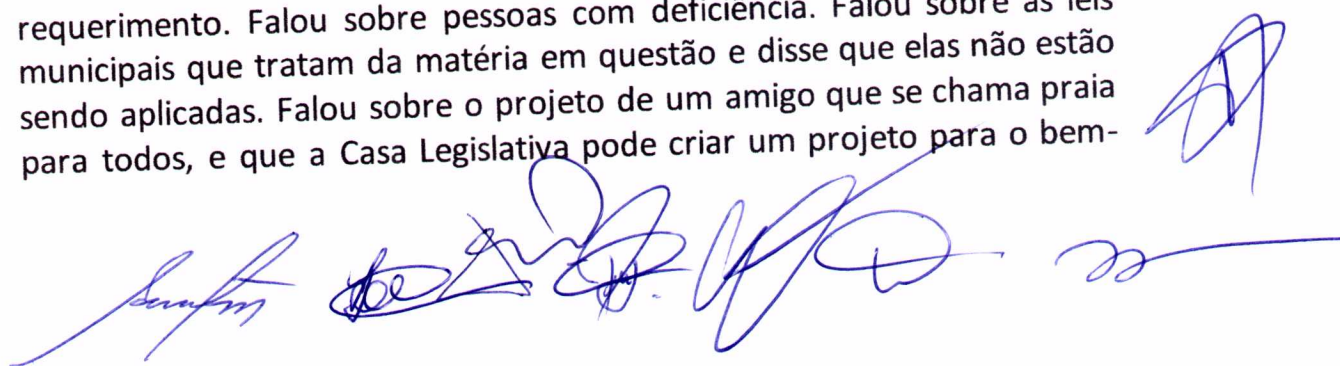 requerimento. Falou sobre pessoas com deficiência. Falou sobre as leis
municipais que tratam da matéria em questão e disse que elas não estão
sendo aplicadas. Falou sobre o projeto de um amigo que se chama praia
para todos, e que a Casa Legislativa pode criar um projeto para o bem-